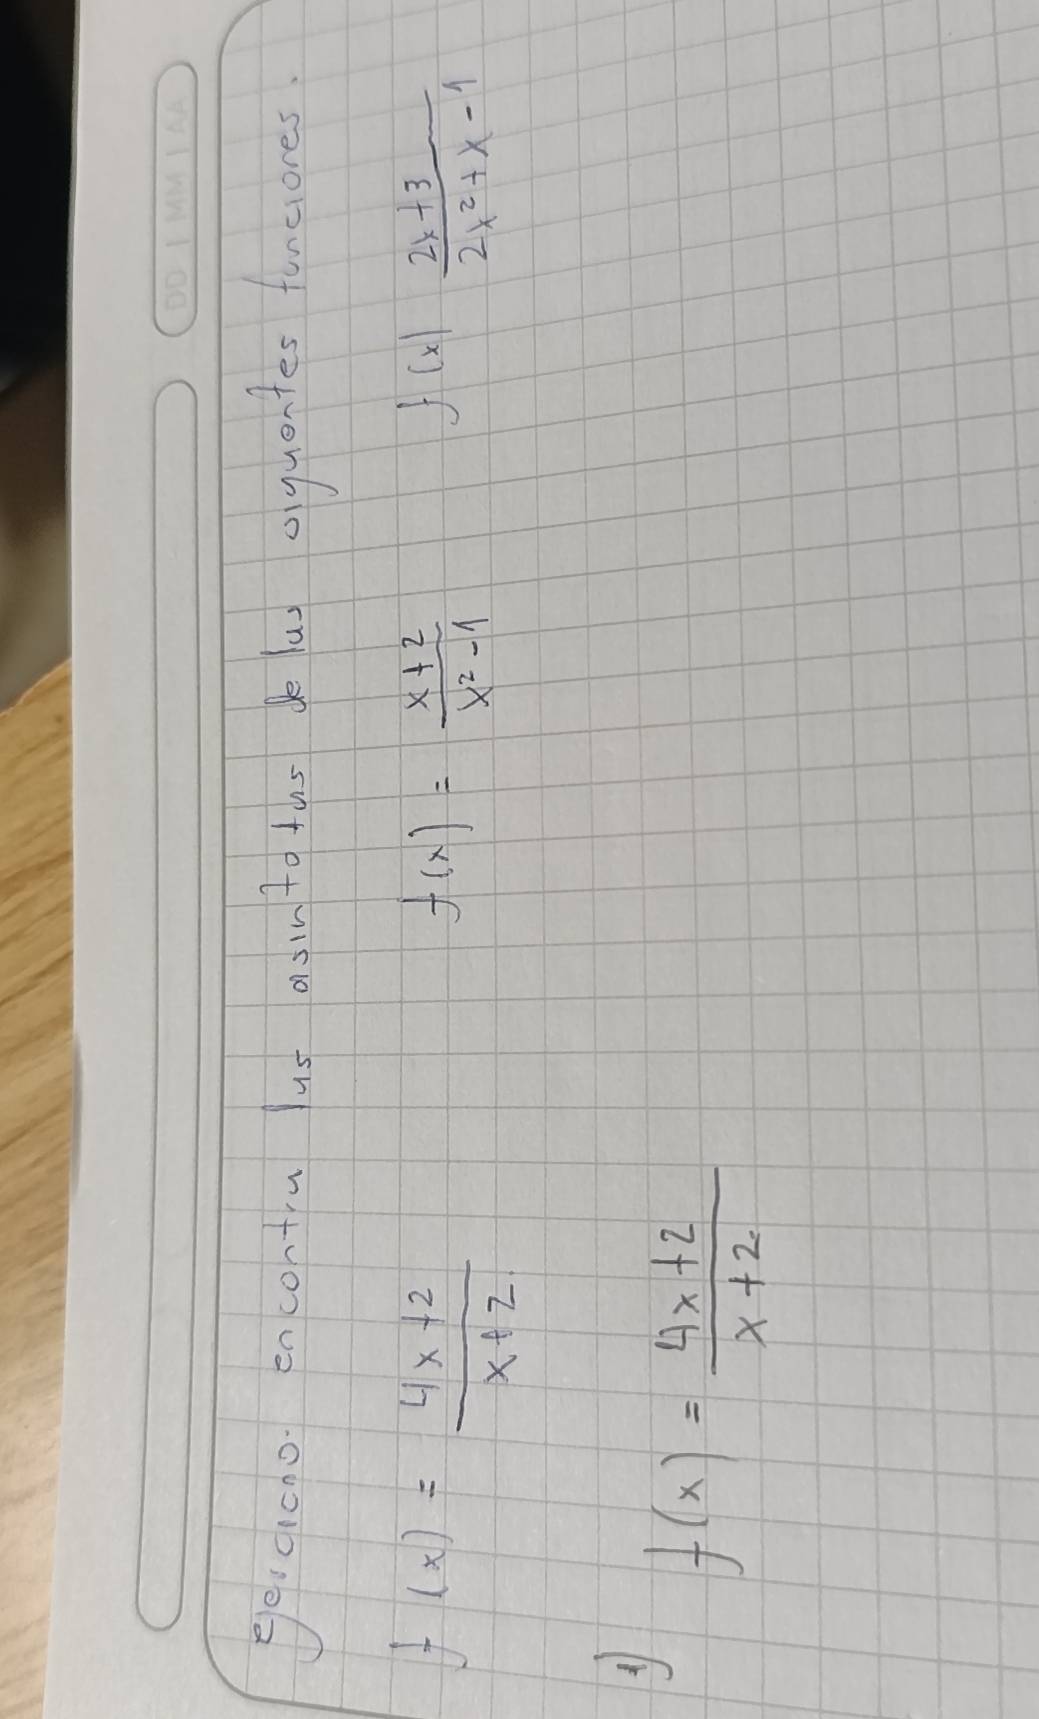 DD | MM | AA
ejercicio. encontra las asintotas de las siguientes funciones.
f(x) = 4x+2 / x+2. f(x) = x+2 / x²-1 f(x) 2x+3 / 2x²+x-1
1) f(x) = 4x+2 / x+2.